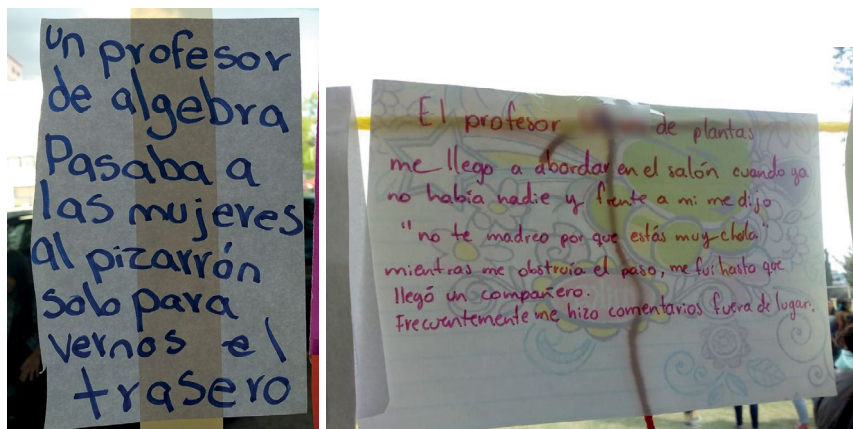 un profesor
de algebra
Pasaba a
las mujeres
al pizarrón
solo para
vernos el
trasero
El profesor de plantas
me llego a abordar en el salón cuando ya
no había nadie y frente a mi me dijo
"no te madreo por que estás muy chula"
mientras me obstruia el paso, me fui hasta que
llegó un compañero.
Frecuentemente me hizo comentarios fuera de lugar.